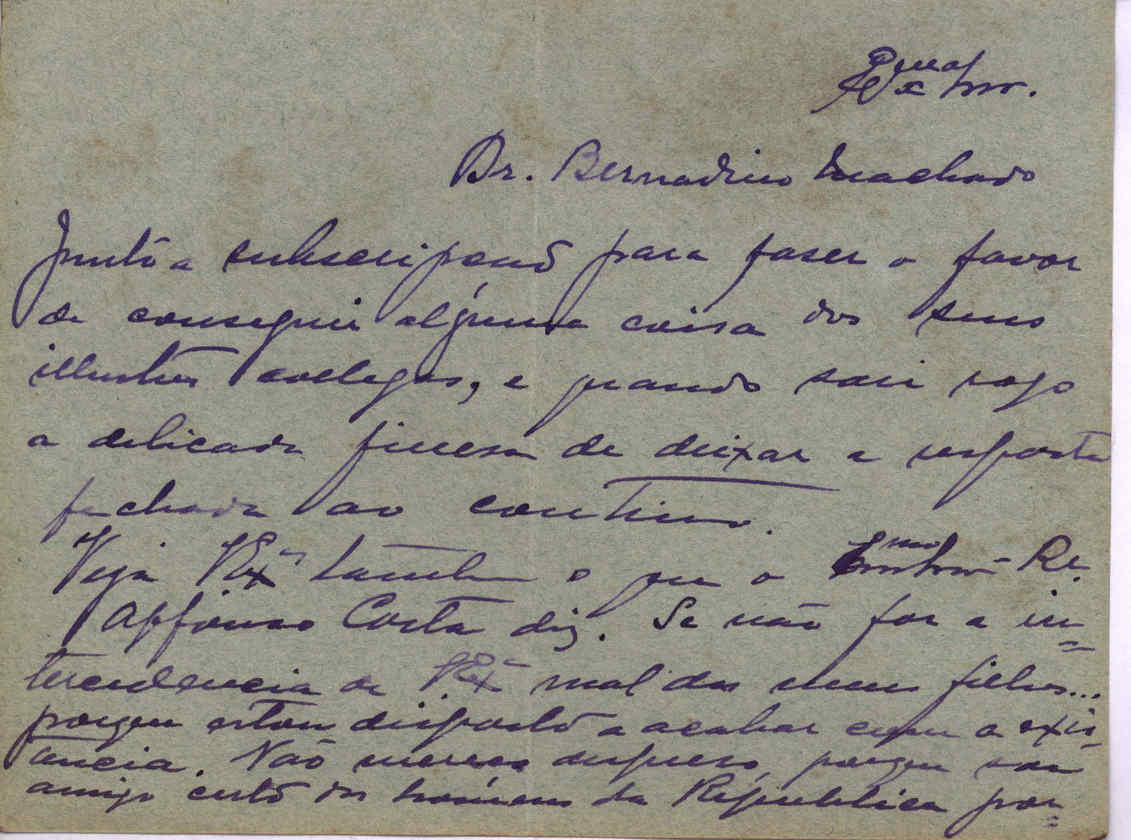 Exmo Snr.
Dr. Bernadino Machado
Junto a subscripção para faser o favor
de conseguir alguma coisa dos seus
illustres collegas, e quando sair rogo
a delicada finesa de deixar a resposta
fechada ao continuo.
Veja VExª tambem o que o Exmo Snr Dr.
Affonso Costa diz. Se não for a in=
tercedencia de VExª mal dos meus filhos...
porque estou disposto a acabar com a exis-
tancia. Não mereço despreso, porque sou
amigo certo dos homens da Republica por=